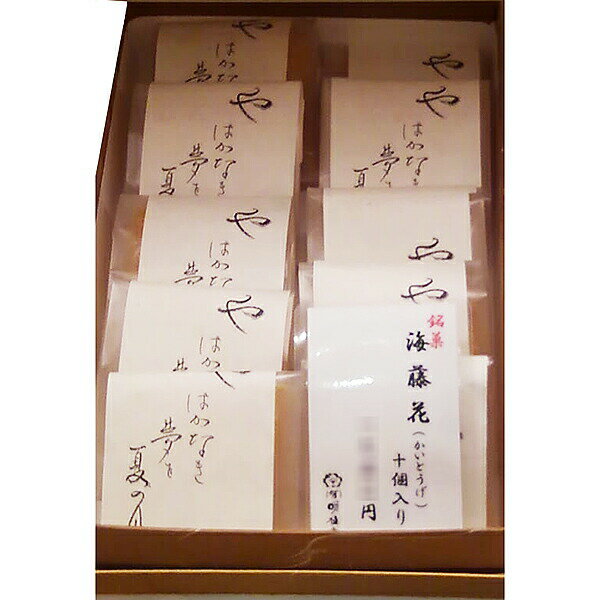 や
はかな
夢
や
や
はかなき
夢を
夏
や
はかなき
夢を
夏
や
はかな
夢
や
や
はかな
夢
や
はかなき
夢を
夏の月
銘菓
海藤花
(かいとうげ)
十個入り
円